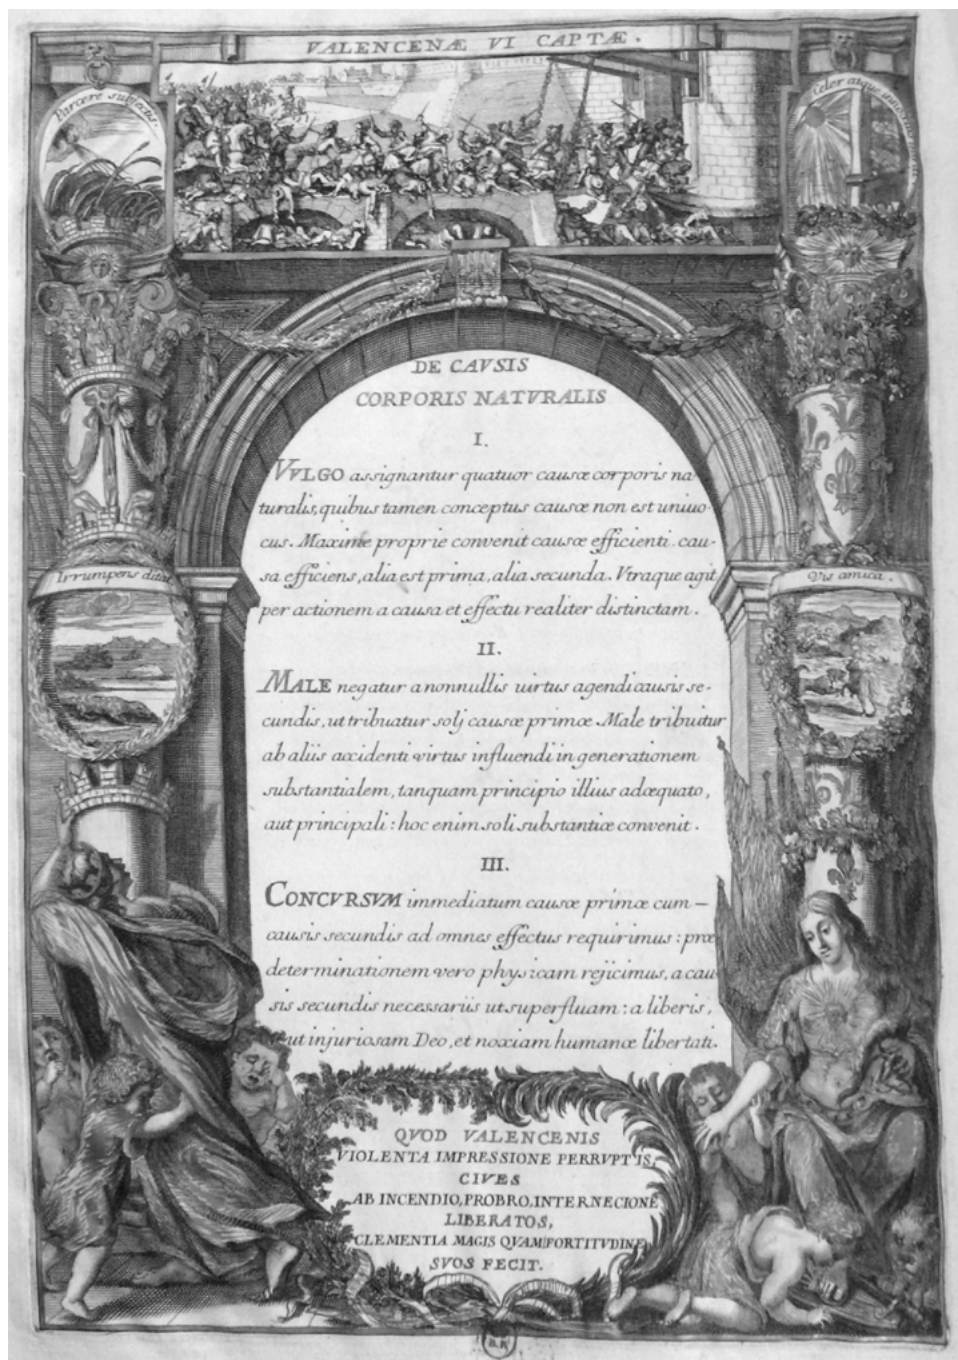 VALENCENÆ VI CAPTÆ.
Parcere subjectis.
Celer atque
DE CAVSIS
CORPORIS NATVRALIS
I.
VVLGO assignantur quatuor causæ corporis na-
turalis, quibus tamen conceptus causæ non est uniuo-
cus. Maxime proprie convenit causæ efficienti. cau-
sa efficiens, alia est prima, alia secunda. Vtraque agit
per actionem a causa et effectu realiter distinctam.
Irrumpens ditat.
Vis amica.
II.
MALE negatur a nonnullis uirtus agendi causis se-
cundis, ut tribuatur solj causæ primæ. Male tribuitur
ab aliis accidenti virtus influendi in generationem
substantialem, tanquam principio illius adæquato,
aut principali: hoc enim soli substantiæ convenit.
III.
CONCVRSVM immediatum causæ primæ cum
causis secundis ad omnes effectus requirimus: præ
determinationem vero physicam rejicimus, a cau
sis secundis necessariis ut superfluam: a liberis,
ut injuriosam Deo, et noxiam humanæ libertati.
QVOD VALENCENIS
VIOLENTA IMPRESSIONE PERRVPTIS,
CIVES
AB INCENDIO, PROBRO, INTERNECIONE
LIBERATOS,
CLEMENTIA MAGIS QVAM FORTITVDINE
SVOS FECIT.